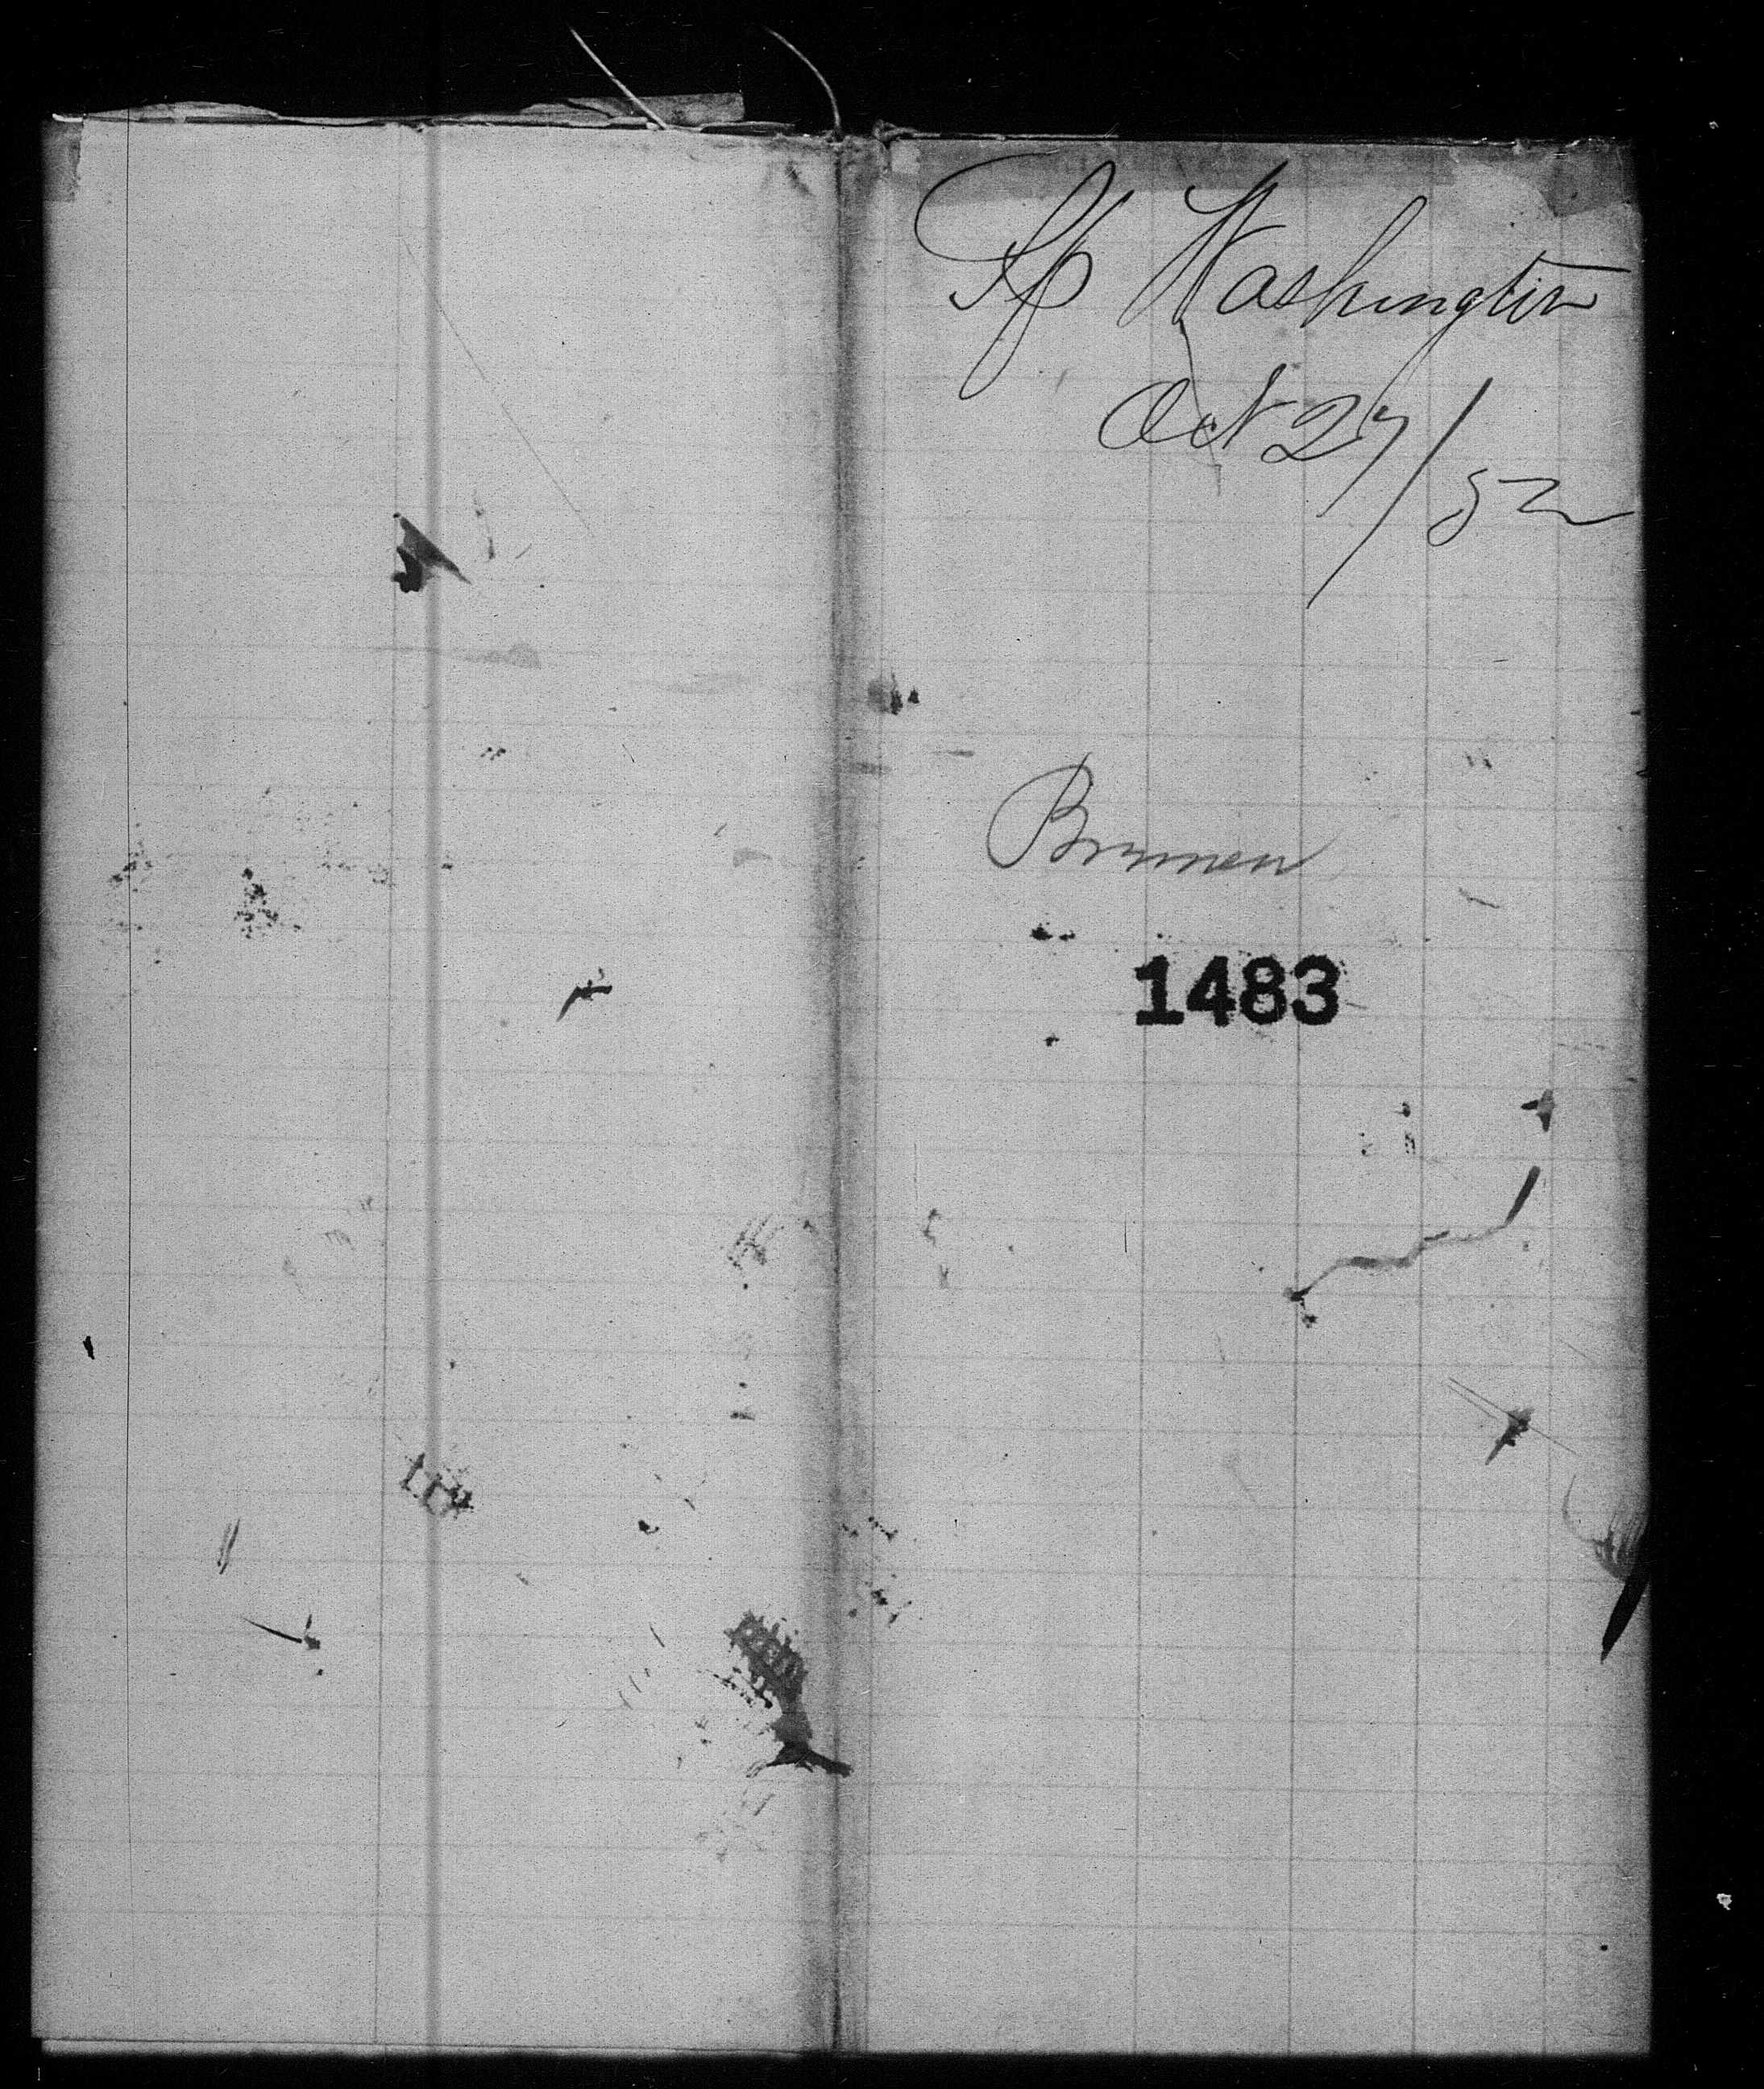 Sp Washington
Oct 27/52
Bremen
1483